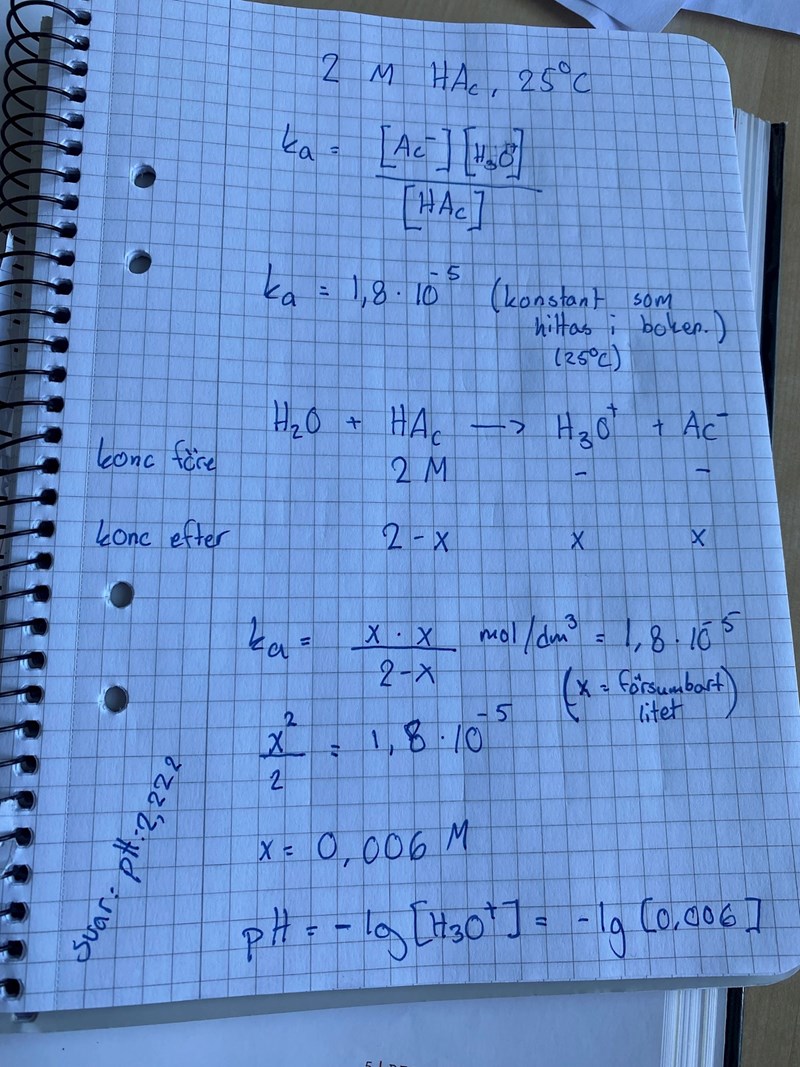 2 M HAc, 25°C
ka = [Ac⁻][H₃O⁺] / [HAc]
ka = 1,8 · 10⁻⁵ (konstant som
hittas i boken.)
(25°C)
H₂O + HAc —> H₃O⁺ + Ac⁻
konc före 2 M - -
konc efter 2-x x x
ka = x · x / 2-x mol/dm³ = 1,8 · 10⁻⁵
(x = försumbart
litet)
x² / 2 = 1,8 · 10⁻⁵
x = 0,006 M
pH = -lg [H₃O⁺] = -lg [0,006]
Svar: pH: 2,222